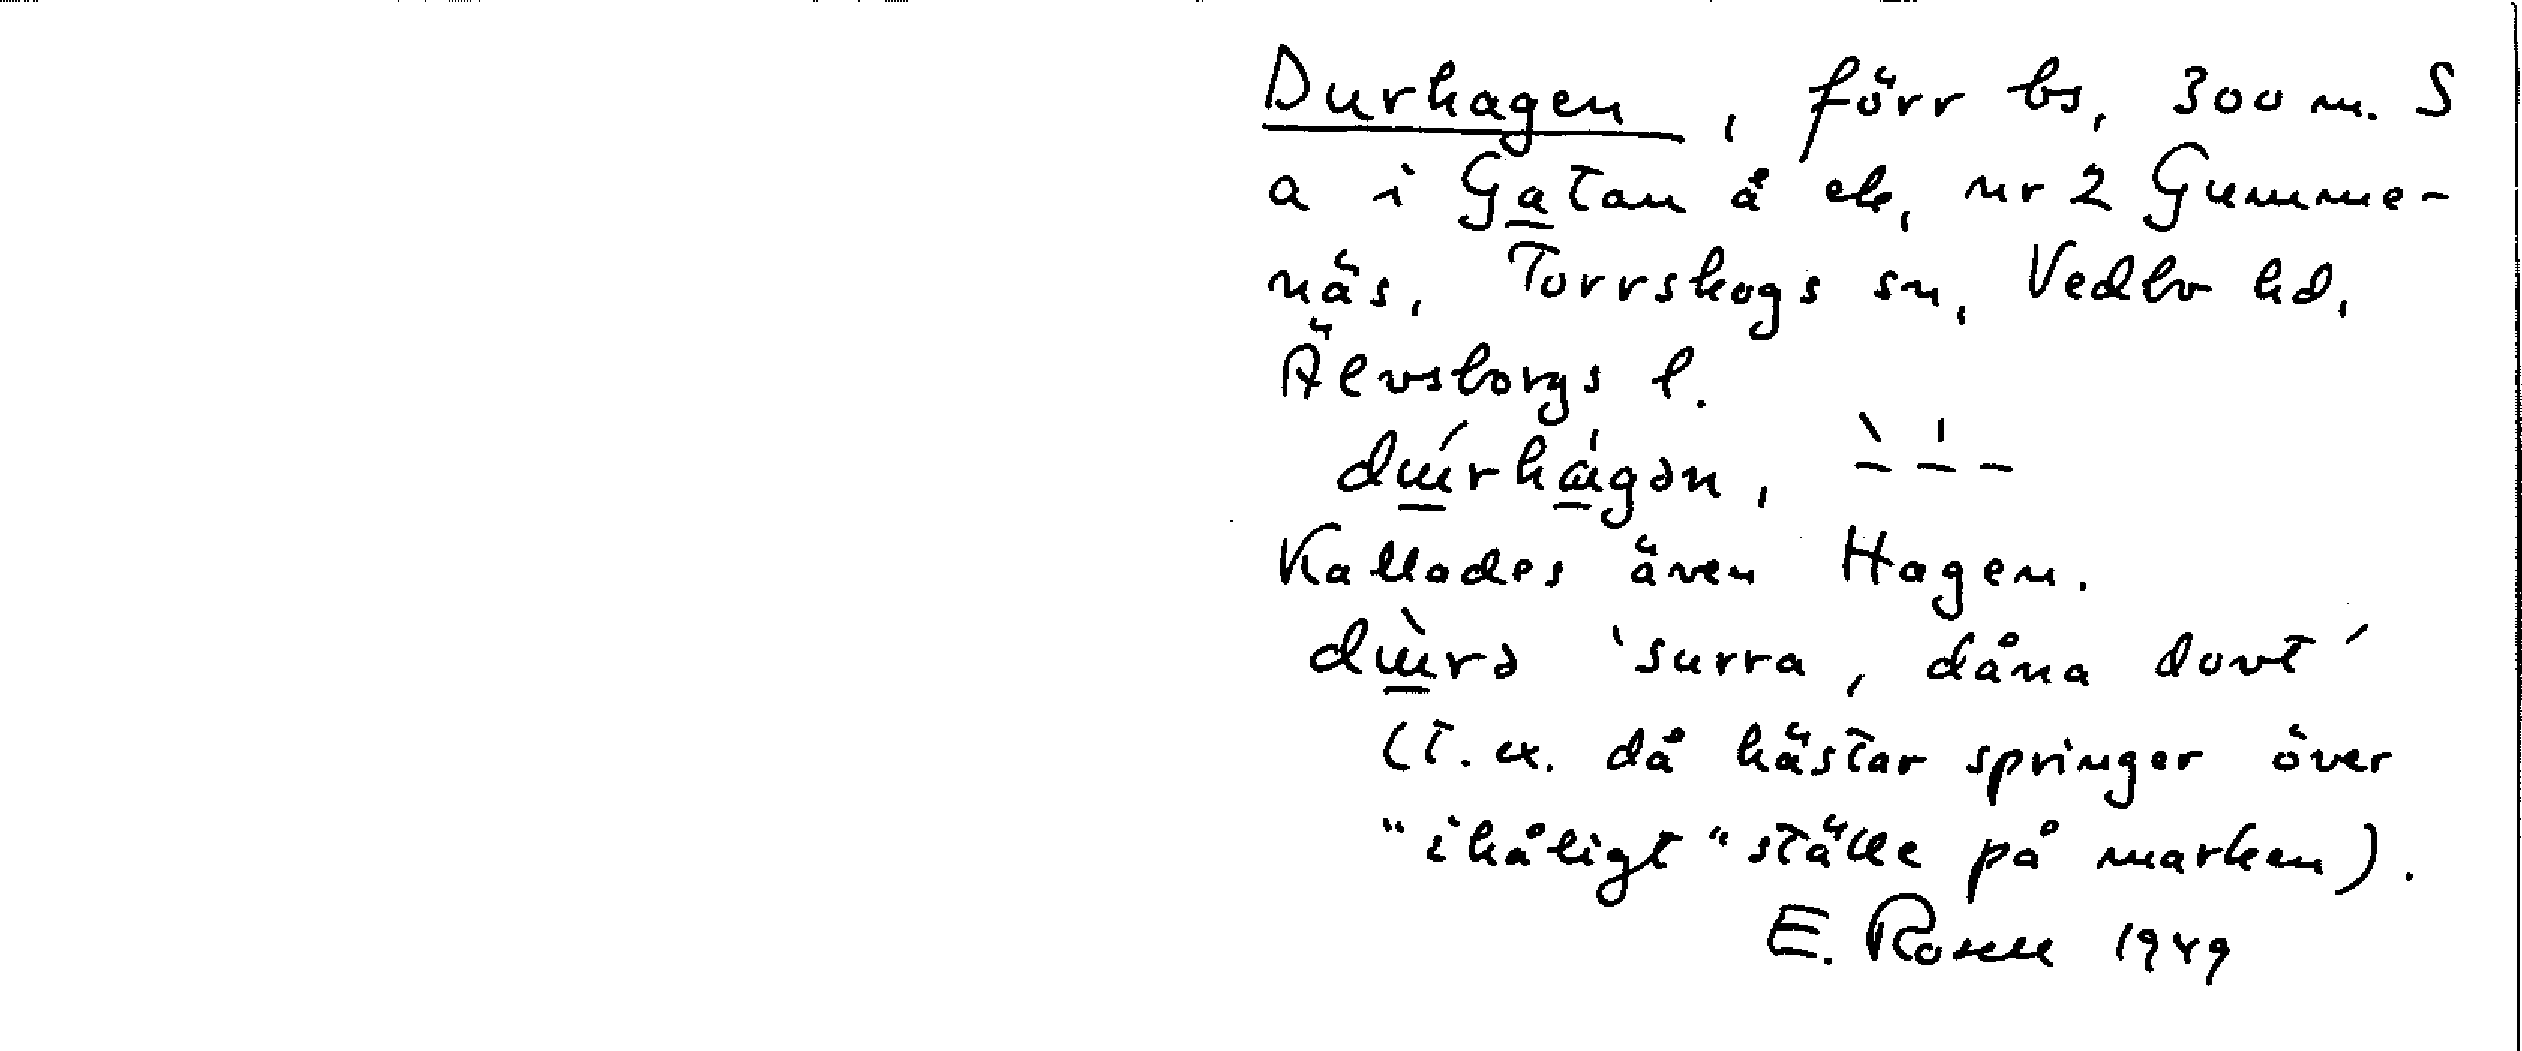 Durhagen, förr bs, 300 m. S
a i Gatan å ek, nr 2 Gumme-
näs, Torrskogs sn, Vedbo hd,
Älvsborgs l.
Kallades även Hagen.
'surra, dåna dovt'
(t. ex. då hästar springer över
"ihåligt" ställe på marken).
E. Rosell 1949